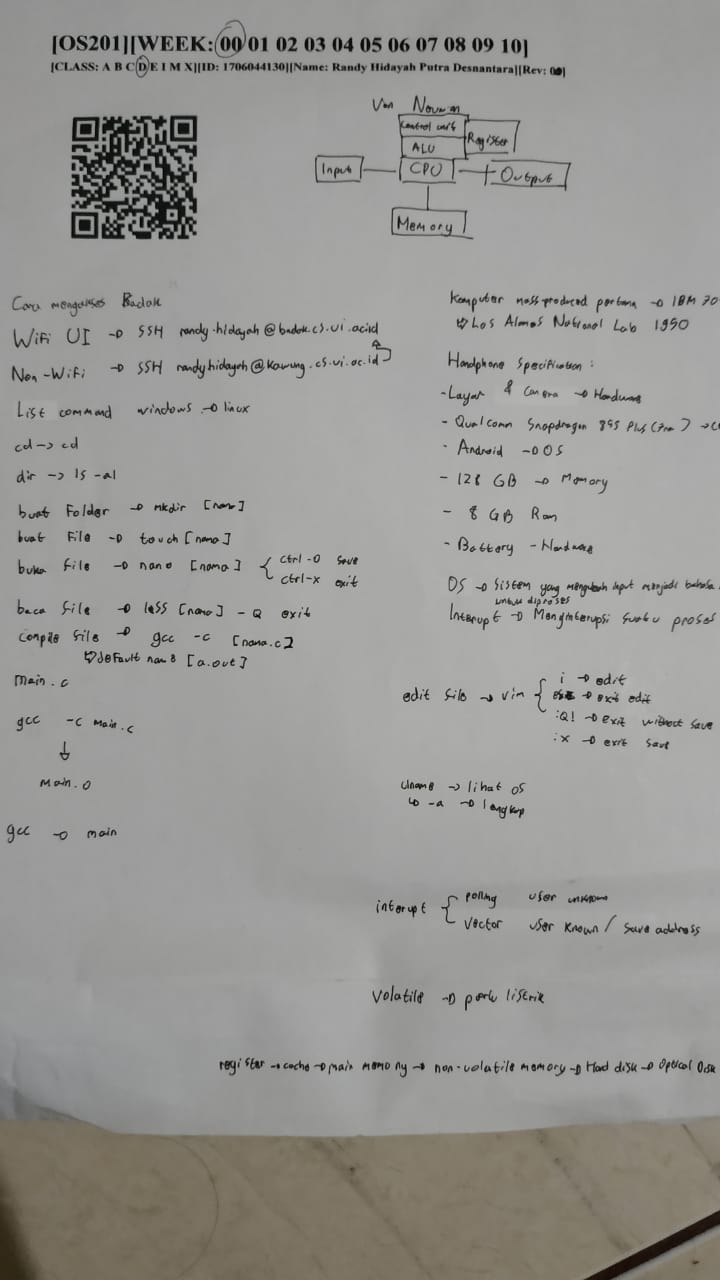 [OS201][WEEK: 00 01 02 03 04 05 06 07 08 09 10]
[CLASS: A B C D E I M X][ID: 1706044130][Name: Randy Hidayah Putra Desnantara][Rev: 00]
Von Neuman
Control unit
Register
ALU
Input
CPU
Output
Memory
Cara mengakses Badak
WiFi UI → SSH randy.hidayah@badak.cs.ui.ac.id
Non-WiFi → SSH randy.hidayah@kawung.cs.ui.ac.id
List command windows → linux
cd → cd
dir → ls -al
buat Folder → mkdir [nama]
buat File → touch [nama]
buka file → nano [nama] { ctrl-O save
ctrl-x exit
baca file → less [nama] - Q exit
compile file → gcc -c [nama.c]
↳ default nama [a.out]
main.c
gcc -c main.c
↓
main.o
gcc → main
Komputer mass-produced pertama → IBM 70
↳ Los Alamos National Lab 1950
Handphone Specification :
- Layar & Camera → Hardware
- Qualcomm Snapdragon 855 Plus →
- Android → OS
- 128 GB → Memory
- 8 GB Ram
- Battery - Hardware
OS → Sistem yang mengubah input menjadi bahasa
untuk diproses
Interupt → Menginterupsi suatu proses
edit file → vim { i → edit
→ exit edit
:Q! → exit without save
:x → exit save
uname → lihat os
↳ -a → lengkap
interupt { polling user unknown
vector user known / save address
Volatile → perlu listrik
register → cache → main memory → non-volatile memory → Hard disk → Optical Disk